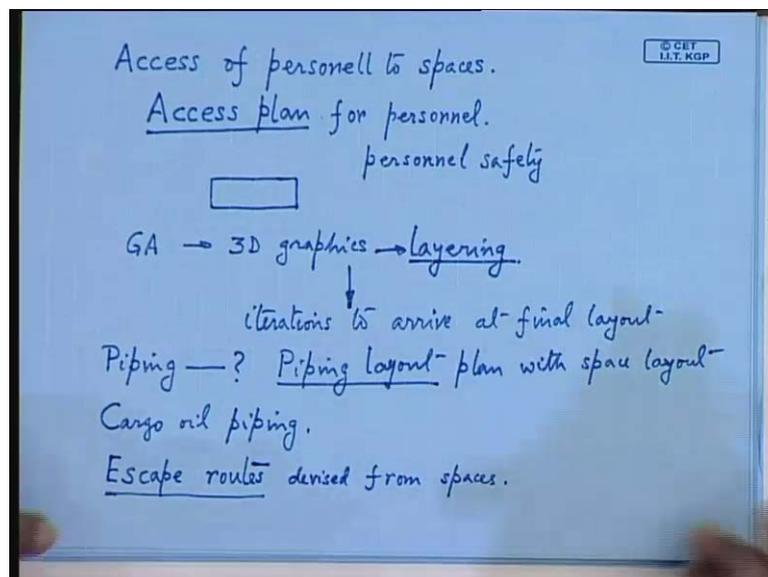 © CET
I.I.T. KGP
Access of personell to spaces.
Access plan for personnel.
personnel safety
GA → 3D graphics → layering.
iterations to arrive at final layout
Piping — ? Piping layout plan with space layout
Cargo oil piping.
Escape routes devised from spaces.